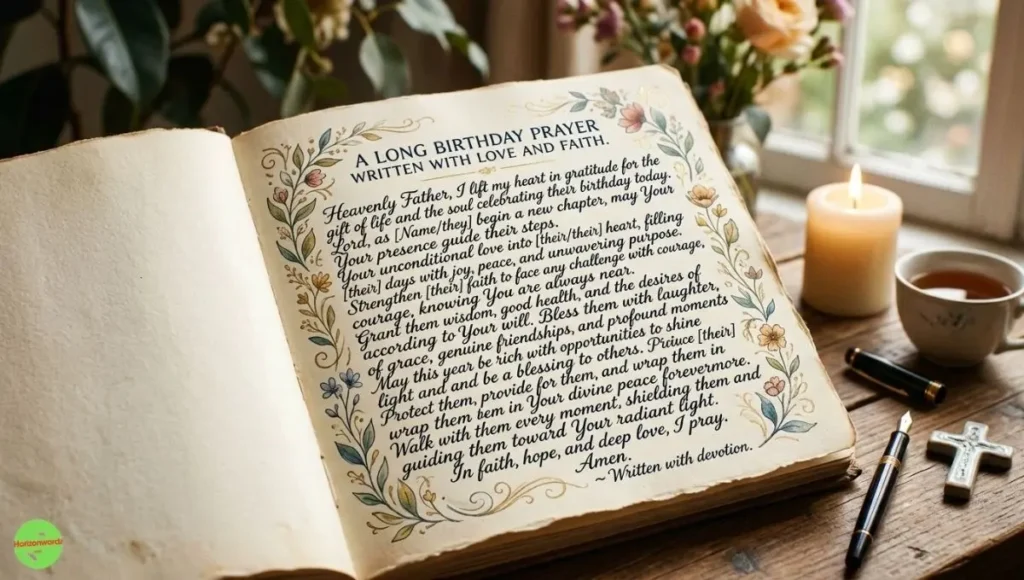 A LONG BIRTHDAY PRAYER
WRITTEN WITH LOVE AND FAITH.
Heavenly Father, I lift my heart in gratitude for the
gift of life and the soul celebrating their birthday today.
Lord, as [Name/they] begin a new chapter, may Your
Your presence guide their steps.
Your unconditional love into [their/their] heart, filling
[their] days with joy, peace, and unwavering purpose.
Strengthen [their] faith to face any challenge with courage,
courage, knowing You are always near.
Grant them wisdom, good health, and the desires of
according to Your will. Bless them with laughter,
of grace, genuine friendships, and profound moments
May this year be rich with opportunities to shine
light and and be a blessing to others. Priuce [their]
Protect them, provide for them, and wrap them in
wrap them bem in Your divine peace forevermore.
Walk with them every moment, shielding them and
guiding them toward Your radiant light.
In faith, hope, and deep love, I pray.
Amen.
~Written with devotion.
Horizonwards